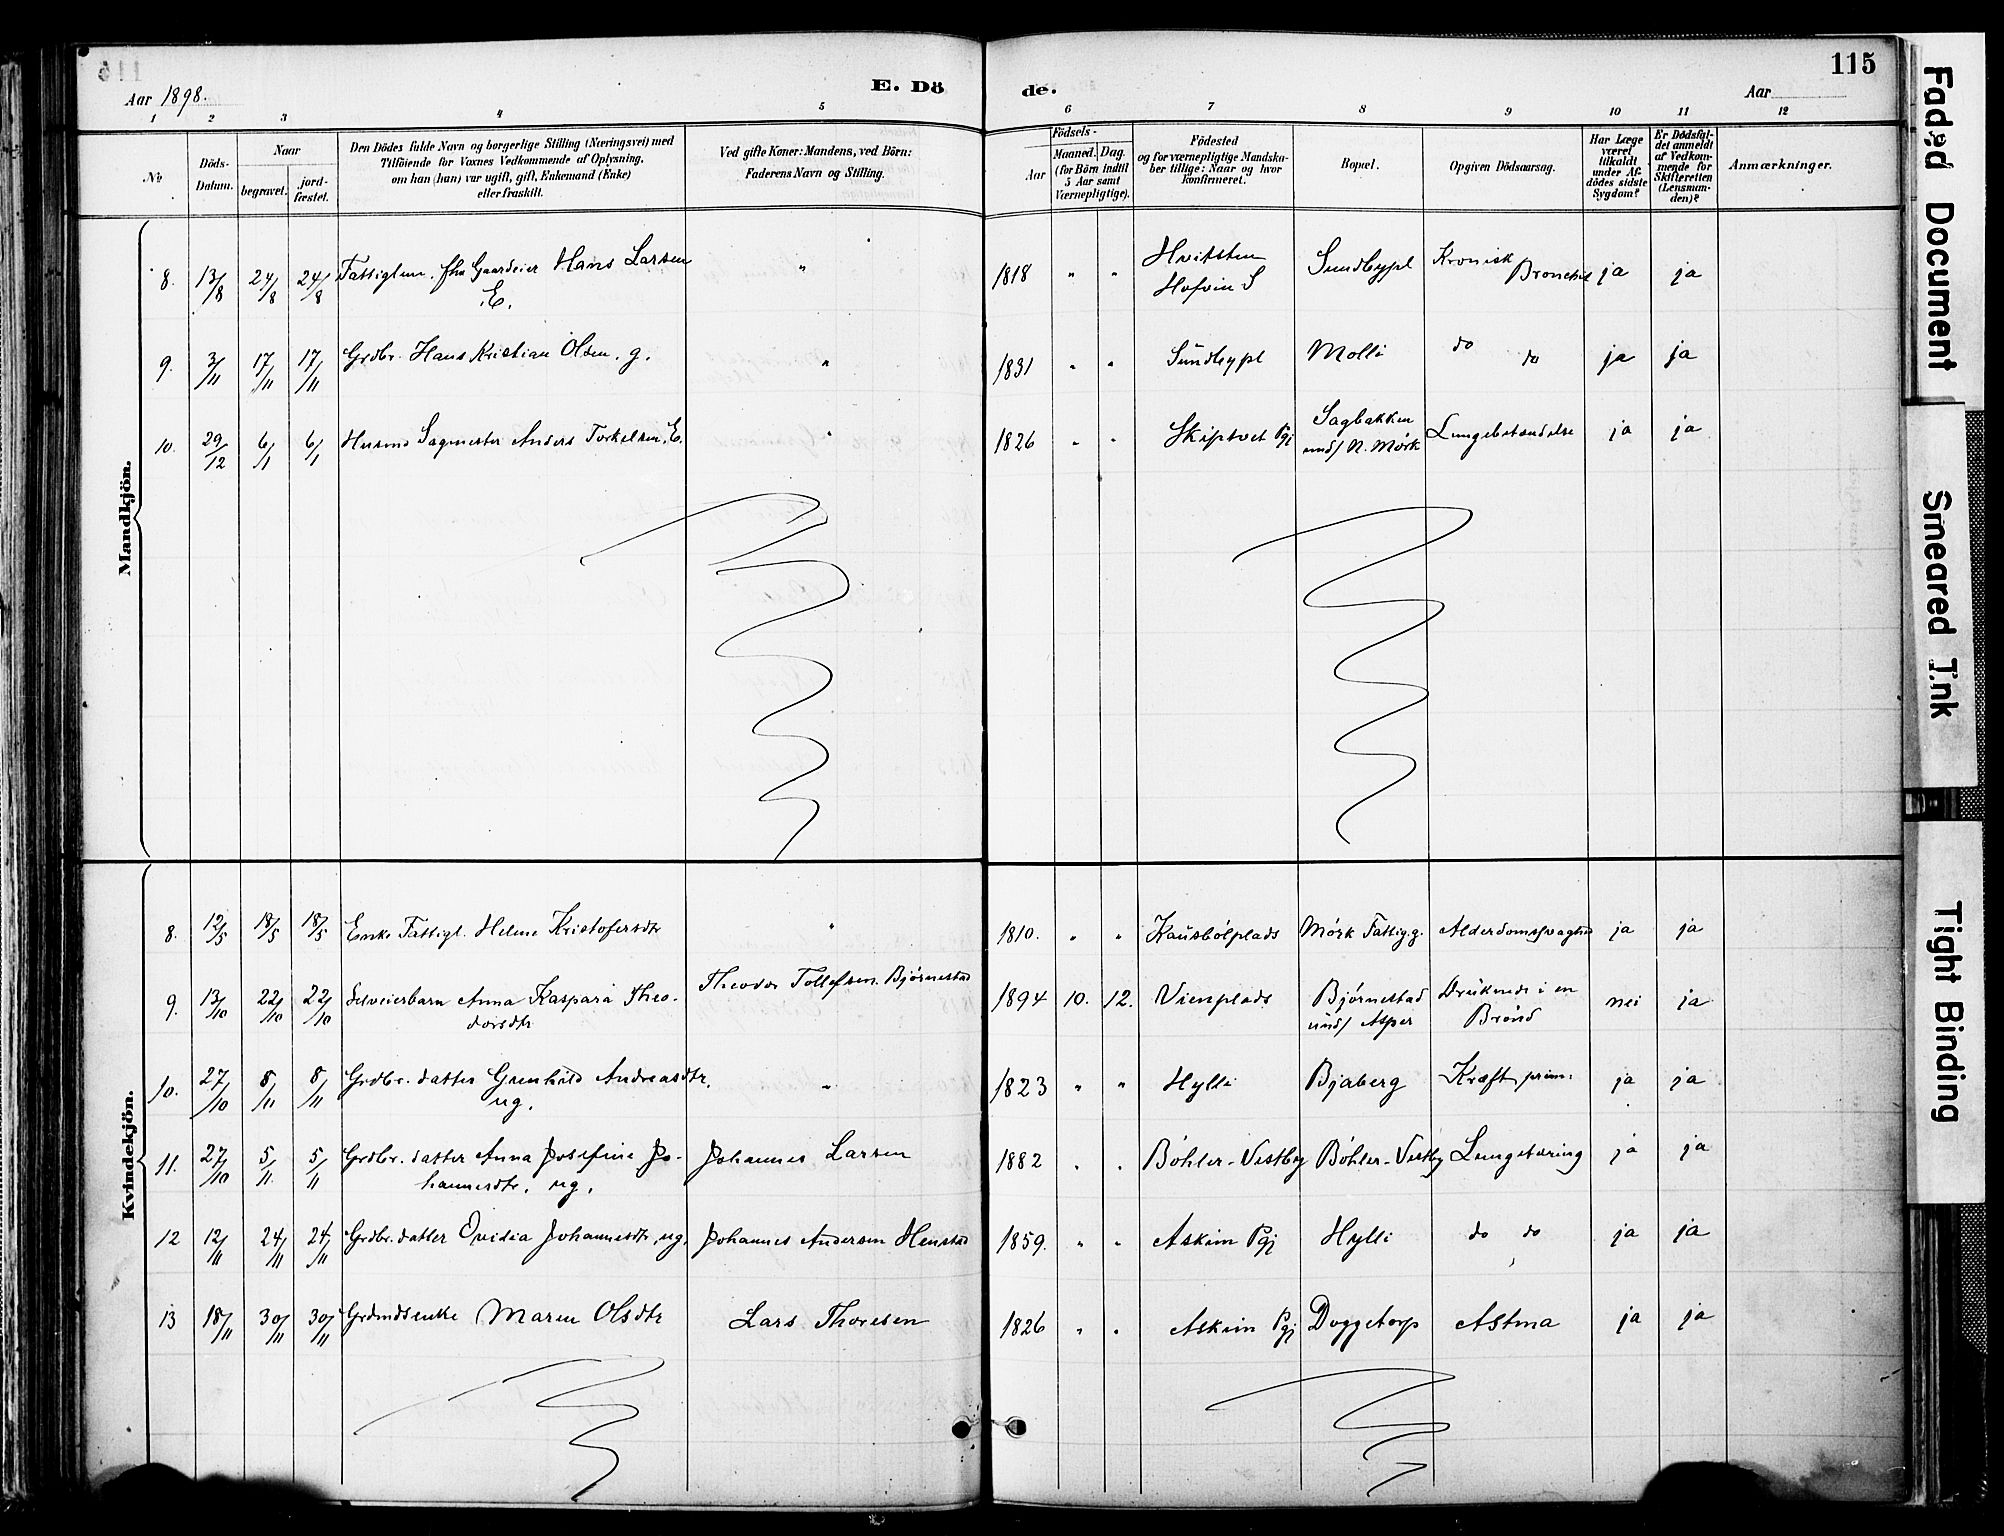 115
Aar 1898. E. Dö de. Aar
1 2 3 4 5 6 7 8 9 10 11 12
№
Döds-Datum.
Naar
begravet.
jord-fæstet.
Den Dödes fulde Navn og borgerlige Stilling (Næringsvei) med
Tilföiende for Voxnes Vedkommende af Oplysning,
om han (hun) var ugift, gift, Enkemand (Enke)
eller fraskilt.
Ved gifte Koner: Mandens, ved Börn:
Faderens Navn og Stilling.
Födsels-
Aar
Maaned. Dag.
(for Börn indtil
5 Aar samt
Værnepligtige).
Födested
og for værnepligtige Mandska-
ber tillige: Naar og hvor
konfirmeret.
Bopæl.
Opgiven Dödsaarsag.
Har Læge
været
tilkaldt
under Af-
dödes sidste
Sygdom?
Er Dödsfal-
det anmeldt
af Vedkom-
mende for
Skifteretten
(Lensman-
den)?
Anmærkninger.
Mandkjön.
8. 13/8 24/8 24/8 Fattiglem, fhv Gaardeier Hans Larsen E. " 1818 " " Hvitsten Hofvin S Sundbypl Kronisk Bronchit ja ja
9. 3/11 17/11 17/11 Grdbr. Hans Kristian Olsen, g. " 1831 " " Sundbypl Molli do do ja ja
10. 29/12 6/1 6/1 Husmd Sagmester Anders Torkelsen, E. " 1826 " " Skiptvet Pgj Sagbakken und/ N. Mørk Lungebetændelse ja ja
Kvindekjön.
8. 12/5 18/5 18/5 Enke Fattigl. Helene Kristofersdtr " 1810. " " Kausbölplads Mørk Fattigg. Alderdomssvaghed ja ja
9. 13/10 22/10 22/10 Selveierbarn Anna Kaspara Theo-
dorsdtr Theodor Tollefsen Bjørnestad 1894 10. 12. Vienplads Bjørnestad und/ Asper Druknede i en Brönd nei ja
10. 27/10 8/11 8/11 Grdbr. datter Gunhild Andreasdtr, ug. " 1823 " " Hylli Bjaberg Kræft, prim. ja ja
11. 27/10 5/11 5/11 Grdbr. datter Anna Josefine Jo-
hannesdtr, ug. Johannes Larsen 1882 " " Böhler-Vestby Böhler-Vestby Lungetæring ja ja
12 12/11 24/11 24/11 Grdbr. datter Ovidia Johannesdtr, ug. Johannes Andersen Henstad 1859. " " Askim Pgj Hylli do do ja ja
13 18/11 30/11 30/11 Grdmdsenke Maren Olsdtr Lars Thoresen 1826 " " Askim Pgj Doggetorp Astma ja ja
Faded Document
Smeared Ink
Tight Binding